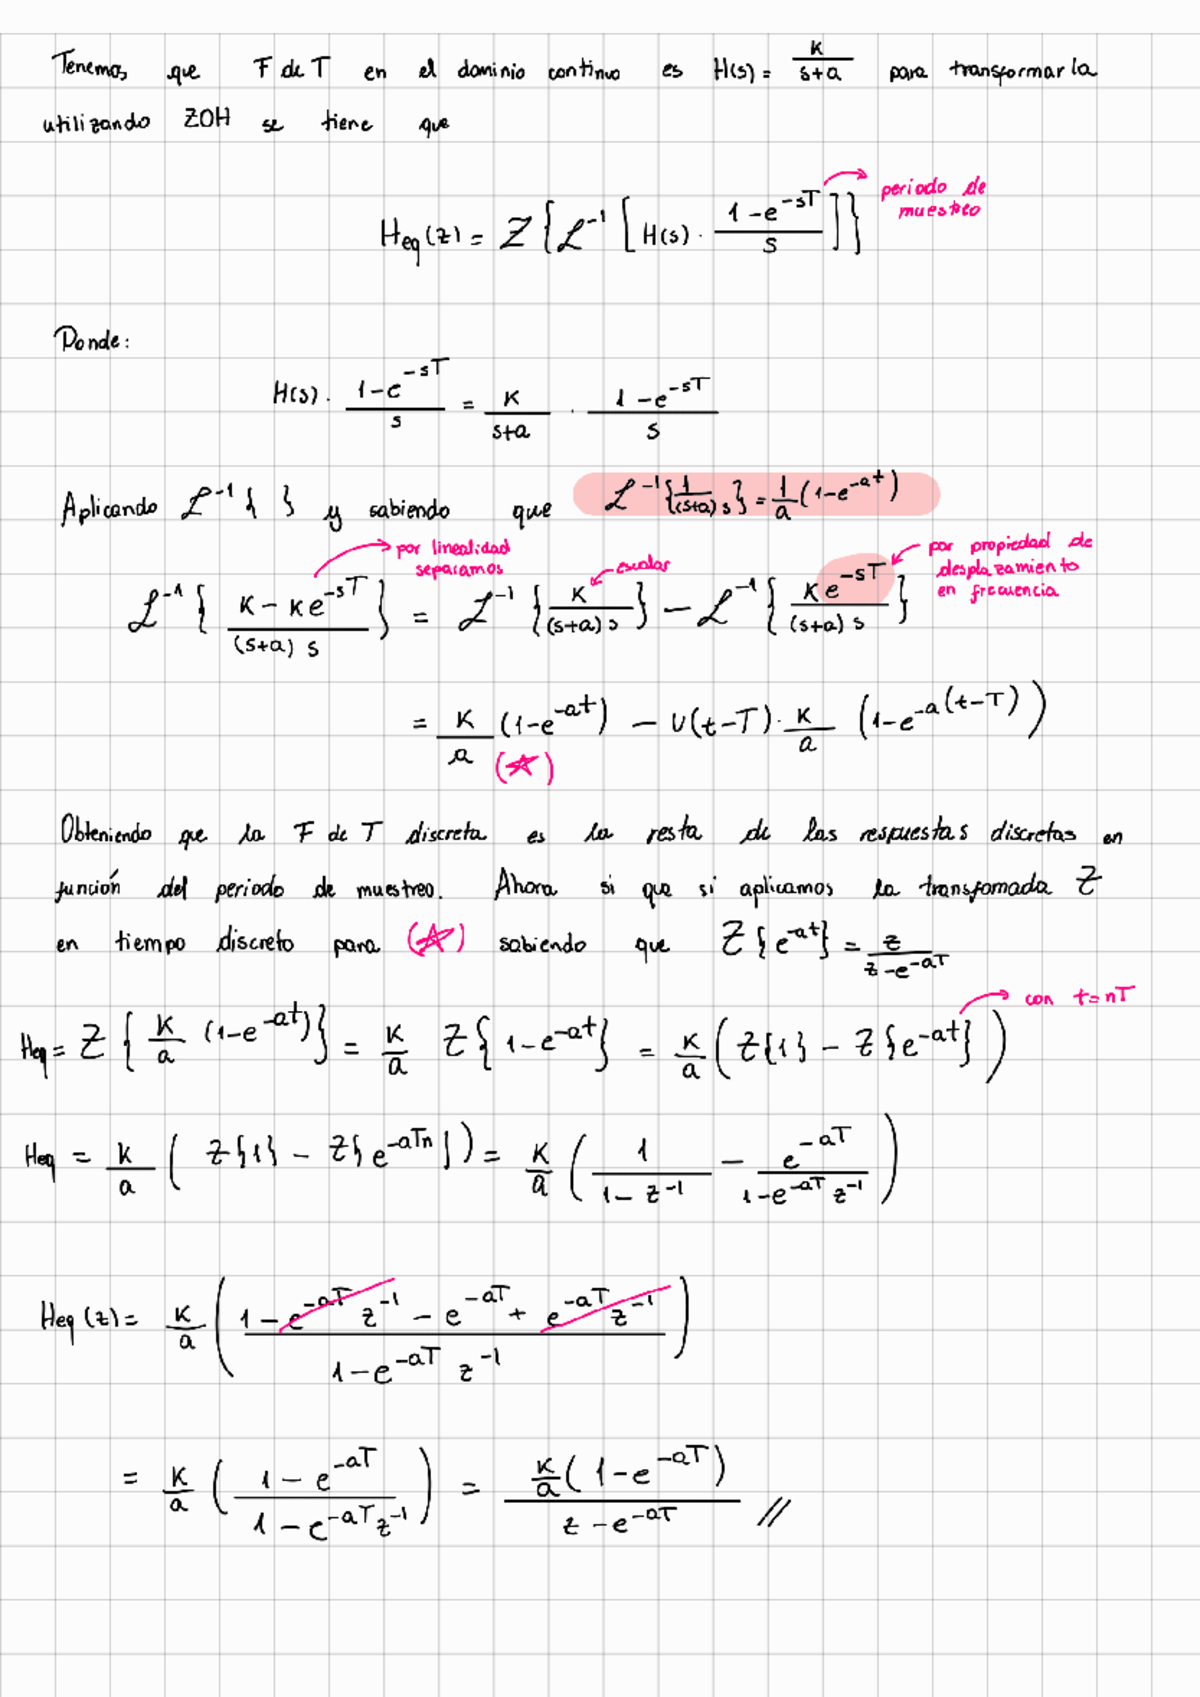 Tenemos que F de T en el dominio continuo es H(s) = K/(s+a) para transformarla
utilizando ZOH se tiene que
periodo de
muestreo
Heq(z) = Z{ℒ⁻¹[H(s) · (1-e^(-sT))/s]}
Donde:
H(s) · (1-e^(-sT))/s = K/(s+a) · (1-e^(-sT))/s
Aplicando ℒ⁻¹{ } y sabiendo que ℒ⁻¹{1/((s+a)s)} = 1/a (1-e^(-at))
por linealidad
separamos
escalar
por propiedad de
desplazamiento
en frecuencia
ℒ⁻¹{(K - Ke^(-sT))/((s+a) s)} = ℒ⁻¹{K/((s+a) s)} - ℒ⁻¹{Ke^(-sT)/((s+a) s)}
= K/a (1-e^(-at)) - U(t-T) · K/a (1-e^(-a(t-T)))
(☆)
Obteniendo que la F de T discreta es la resta de las respuestas discretas en
función del periodo de muestreo. Ahora si que si aplicamos la transfomada Z
en tiempo discreto para (☆) sabiendo que Z{e^(-at)} = z/(z-e^(-aT))
con t=nT
Heq = Z{K/a (1-e^(-at))} = K/a Z{1-e^(-at)} = K/a (Z{1} - Z{e^(-at)})
Heq = K/a (Z{1} - Z{e^(-aTn)}) = K/a (1/(1-z⁻¹) - e^(-aT)/(1-e^(-aT) z⁻¹))
Heq(z) = K/a ((1-e^(-aT) z⁻¹ - e^(-aT) + e^(-aT) z⁻¹)/(1-e^(-aT) z⁻¹))
= K/a ((1-e^(-aT))/(1-e^(-aT) z⁻¹)) = (K/a (1-e^(-aT)))/(z-e^(-aT)) //